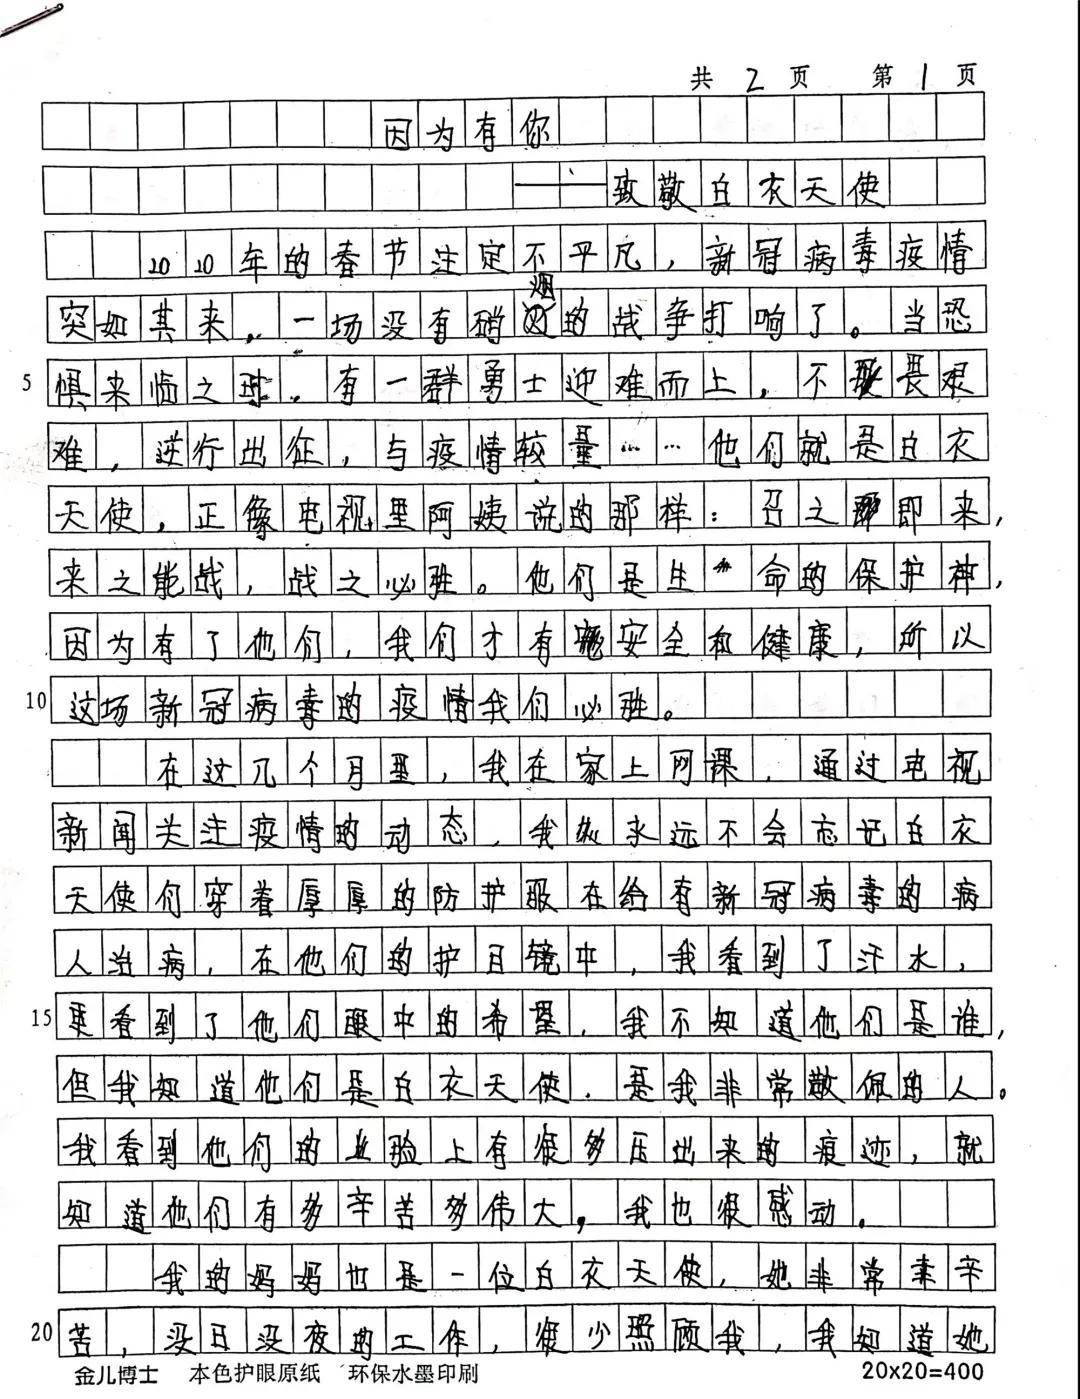 共 2 页 第 1 页
因为有你
——致敬白衣天使
2020年的春节注定不平凡，新冠病毒疫情
突如其来，一场没有硝烟的战争打响了。当恐
5 惧来临之时，有一群勇士迎难而上，不畏艰
难，逆行出征，与疫情较量……他们就是白衣
天使，正像电视里阿姨说的那样：召之即来，
来之能战，战之必胜。他们是生命的保护神，
因为有了他们，我们才有安全和健康，所以
10 这场新冠病毒的疫情我们必胜。
在这几个月里，我在家上网课，通过电视
新闻关注疫情的动态，我永远不会忘记白衣
天使们穿着厚厚的防护服在给有新冠病毒的病
人治病，在他们的护目镜中，我看到了汗水，
15 更看到了他们眼中的希望，我不知道他们是谁，
但我知道他们是白衣天使，是我非常敬佩的人。
我看到他们的脸上有很多压出来的痕迹，就
知道他们有多辛苦多伟大，我也很感动。
我的妈妈也是一位白衣天使，她非常辛
20 苦，没日没夜的工作，很少照顾我，我知道她
金儿博士 本色护眼原纸 环保水墨印刷 20x20=400